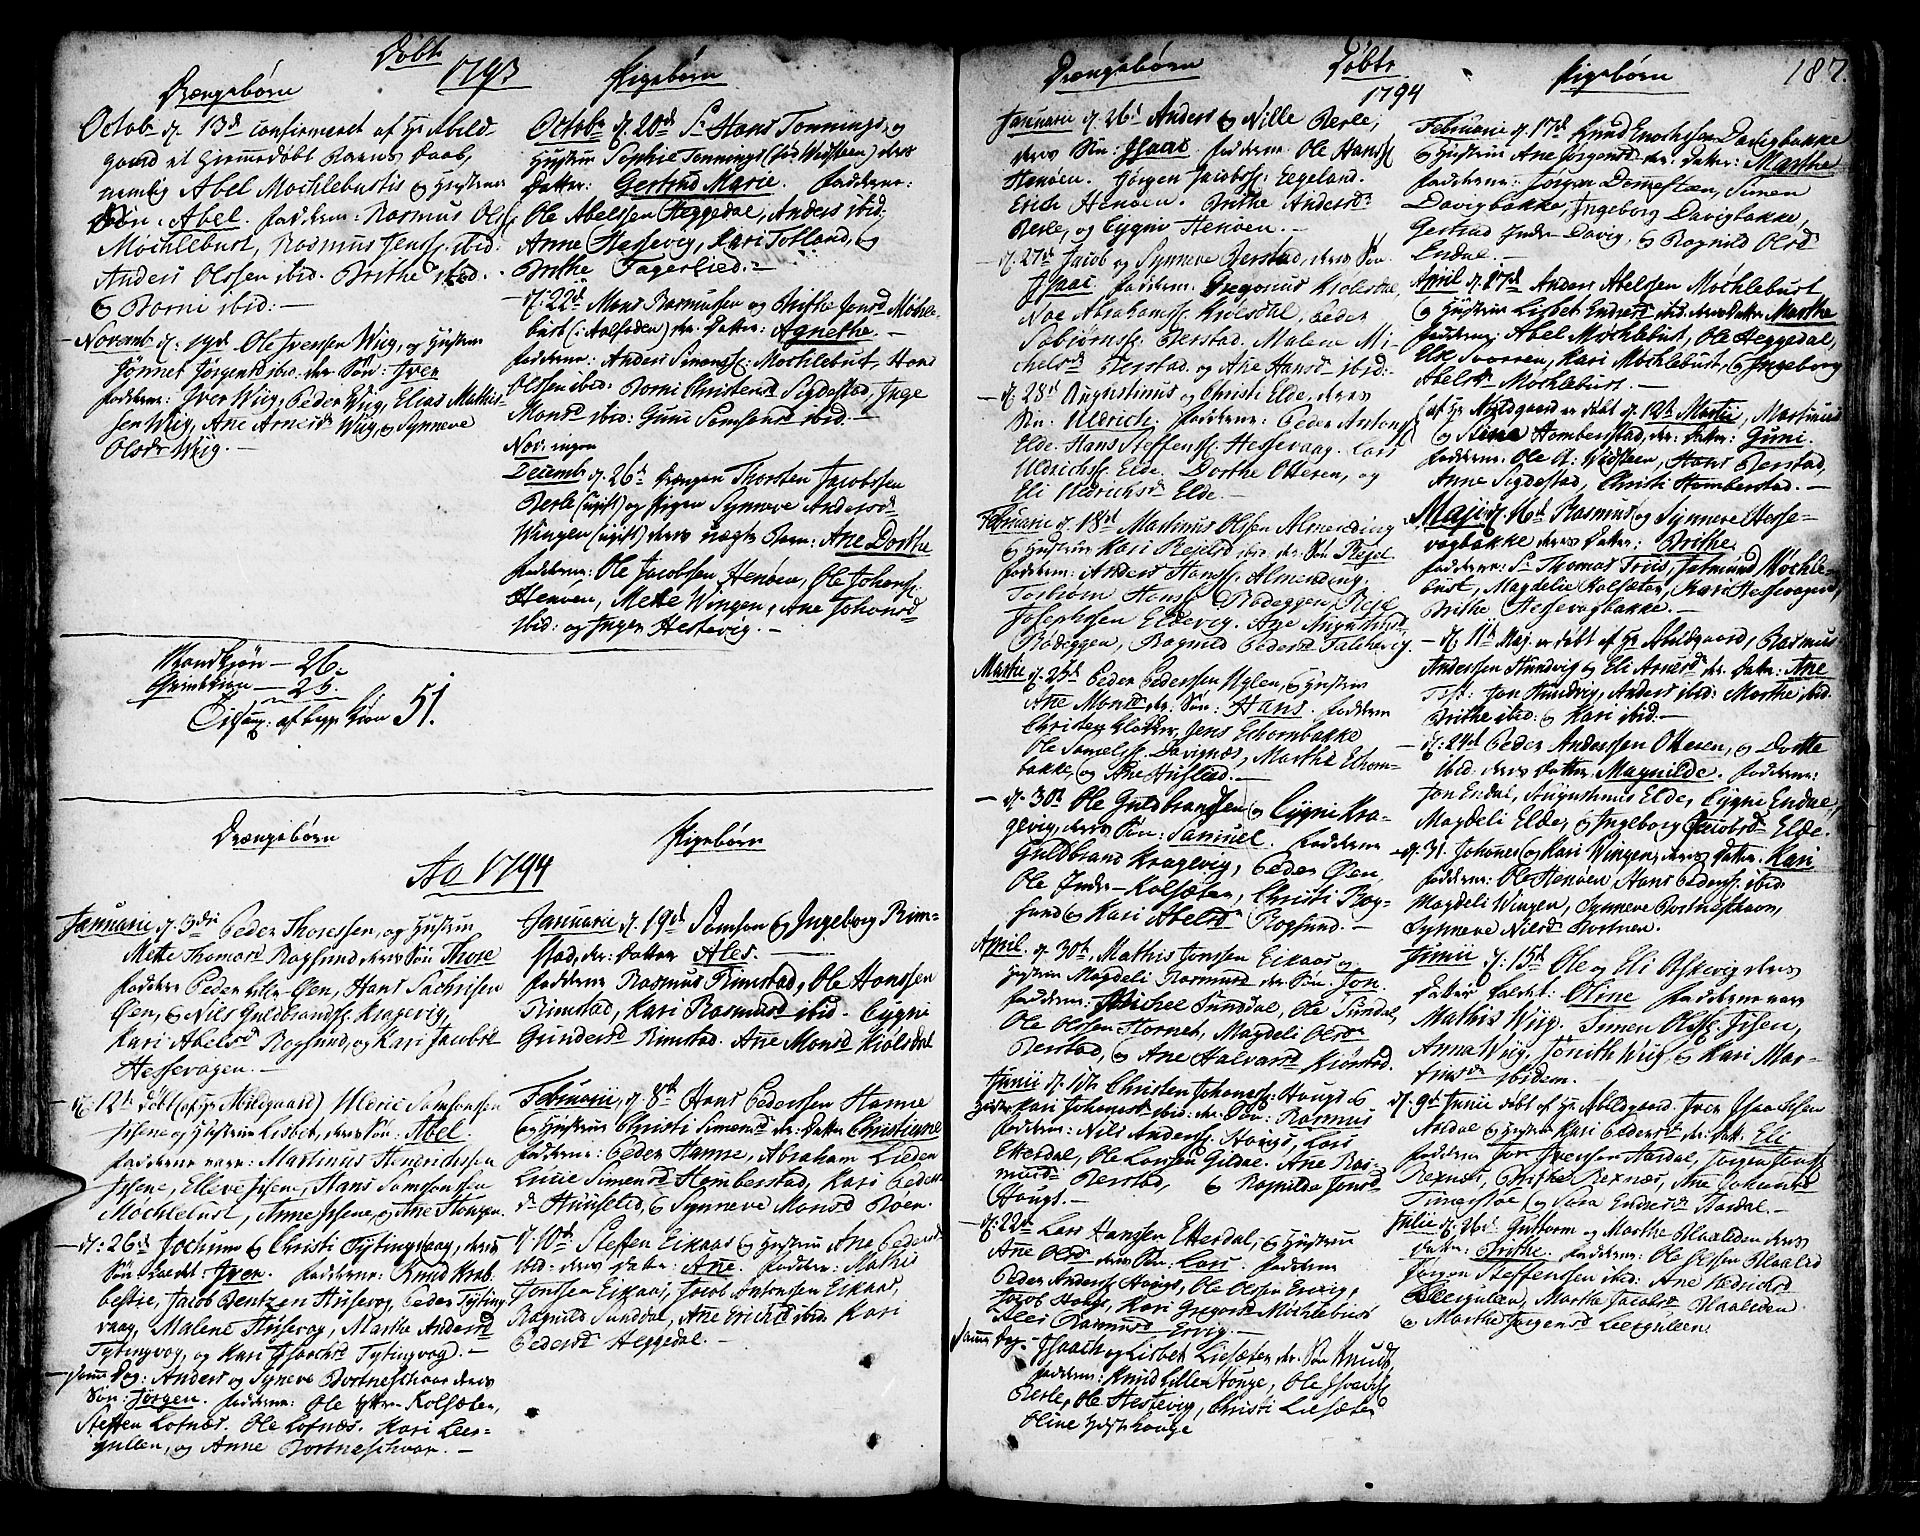 Døbte
1793
Drengebørn
Octob: d. 13d confirmeret af Hr Abild
gaard et hjemmedøbt Barns Daab,
nemlig Abel Mochlebustis & Hustrues
Søn: Abel. Fadderne: Rasmus Olss:
Mochlebust, Rasmus Jenss: ibid:
Anders Olssen ibid. Brithe ibid.
& Borni ibid:
Novemb: d. 19d Ole Iversen Wiig, og Hustrue
Jønnet Jørgensd ibid. der: Søn: Iver
Fadderne: Iver Wiig, Peder Wiig, Elias Mathis-
sen Wiig, Ane Arnesd Wiig, & Synneve
Olsdr Wiig.
Pigebørn
Octobr d. 20d Sr Hans Tonning, og
Hustrue Sophie Tonning (fød Widsteen) deres
Datter: Gertrud Marie. Fadderne:
Ole Abelssen Heggedal, Anders ibid:
Anne Hessevig, Kari Totland, &
Brithe Fagerlied.
d: 22d Mons Rasmussen og Brithe Jensd Møchle-
bust (i Aalfoden) der: Datter: Agnethe.
Fadderne: Anders Simonss: Mochlebust, Hans
Olssen ibid: Borni Christensd Sigdestad, Inge
Monsd ibid: Guni Samsond ibid.
Nov: ingen
Decemb: d. 26d Drengen Thorsten Jacobssen
Berle (ugift) og Pigen Synneve Andersd
Wingen (ugift) deres uægte Barn: Ane Dorthe
Fadderne: Ole Jacobssen Henøen, Ole Johanss:
Henøen, Mette Wingen, Ane Johansd
ibid: og Inger Hestevig.
Mandkjøn — 26.
Qvindkjøn — 25.
Tilsam: af begge Kiøn 51.
Drengebørn
Pigebørn
Ao 1794
Januarii d. 3die Peder Thoressen, og Hustrue
Mette Thomasd Rogsund deres Søn Thore
Faddere Peder Lille-Øen, Hans Sachrisen
Øen, & Nils Guldbrandss: Kragevig,
Kari Abelsd Rogsund, og Kari Jacobsd
Hessevogen.
d. 12te døbt (af Hr Abildgaard) Aldric Samsonssen
Hysene og Hustrue Lisbet, deres Søn: Abel.
Fadderne vare: Martinus Henrichssen
Hysene, Elleve Hysene, Hans Samsonssen
Mochlebust, Anne Hysene, og Ane Stongen.
d: 26d Jochum & Christi Tytingvaag, deres
Søn kaldet: Iver. Fadderne: Knud Krab-
bestie, Jacob Bentzen Husevog, Peder Tyting-
vaag, Malene Husevog, Marthe Andersd
Tytingvog, og Kari Isachsd Tytingvog.
samme Dag: Anders og Synneve Bortneschaar deres
Søn: Jørgen. Fadderne: Ole Yttre Kolsæter,
Steffen Lofnæs. Ole Lofnæs. Kari Lees-
gulen, og Anne Bortneschaar.
Januarii d. 19d Samson & Ingeborg Rim-
stad, der: Datter Ales.
Fadderne Rasmus Rimstad, Ole Hanssen
Rimstad, Kari Rasmusd ibid. Cygni
Gundersd Rimstad. Ane Monsd Kiølsdal
Februarii, d. 8de Hans Pederssen Hanne
& Hustrue Christi Simensd der: Datter Christiane
Fadderne: Peder Hanne, Abraham Lieden
Lucie Simensd Homberstad, Kari Peders
d Hunsstad, & Synneve Monsd Røen.
d 10d Steffen Eikaas & Hustrue Ane Pedersd
ibid. deres Datter: Ane. Fadderne: Mathis
Jonssen Eikaas, Jacob Antonssen Eikaas,
Ragnild Sunddal, Ane Erichsd ibid. Kari
Pedersd Heggedal.
187.
Drengebørn
Døbte
1794
Pigebørn
Januarii d. 26d Anders & Nille Berle,
deres Søn: Isaac. Fadderne: Ole Hanss:
Henøen. Jørgen Jacobss: Eegeland.
Erich Henøen. Brithe Andersdr
Berle, og Cygni Henøen.
d. 27d Jacob og Synneve Berstad, deres Søn
Isaac. Fadderne: Gregorius Kiølesdal,
Noe Abrahamss: Kiølsdal, Peder
Tobiørns: Berstad. Malene Mi-
chelsd Berstad. og Ane Hansd ibid:
d. 28d Augustinus og Christi Elde, deres
Søn: Uldrich. Fadderne: Peder Antons:
Elde. Hans Steffens: Hessevaag. Lars
Uldrichss: Elde. Dorthe Otteren, og
Eli Uldrichsd Elde.
Februarii d. 18d Martinus Olssen Almending
& Hustrue Kari Rejelsd ibid. der: Søn Rejel
Fadderne: Anders Hanss: Almending.
Torbiørn Hanss: Rodeggen, Rejel
Josephssen Eldevig. Ane Augustinsd
Rodeggen, Ragnild Pedersd Falchevig.
Martii d. 25d Peder Pederssen Nylen, & Hustrue
Ane Monsd der: Søn: Hans. Fadderne
Christen Klokker, Jens Echornbakke
Ole Samelss: Davignæs, Marthe Echorn-
bakke, & Ane Hufstad.
d. 30te Ole Guldbrandssen & Cygni Kra-
gevig, deres Søn: Samuel. Fadderne
Guldbrand Kragevig, Peder Øen,
Ole Indre-Kolsæter, Christi Rog-
sund & Kari Abelsdr Rogsund.
April. d. 30te, Mathis Jonssen Eikaas og
Hustrue Magdeli Rasmusd der: Søn: Jon.
Fadderne: Michel Sunddal, Ole Sunddal,
Ole Olssen Hornet, Magdeli Olsdr
Berstad, & Ane Halvarsd Kiørstad.
Junii d. 1te Christen Johanss: Hougs &
Hustrue Kari Johansd ibid. der: Søn: Rasmus
Fadderne: Nils Anderss: Hougs, Lars
Etterdal, Ole Larssen Gildal. Ane Ras-
musdr Berstad, & Ragnilda Jonsd
Hougs.
d. 22de Lars Hanssen Etterdal, & Hustrue
Ane Olsd deres Søn: Lars. Fadderne
Peder Anderss: Hougs, Ole Olssen Ervig,
Jacob Hougs, Kari Gregorsd Mochlebust
Ales Rasmusd Ervig.
Samme Dag. Isaach og Lisbet Liesæter der: Søn Knud.
Fadderne: Knud Lille Houge, Ole Isaachss:
Berle, Ole Hestevig, Christi Liesæter
Oline Ydsthouge
Februarii d. 17d Knud Enochssen Davigbakke
& Hustrue Ane Jørgensd der: Datter: Marthe
Fadderne: Jørgen Domestæen, Simen
Davigbakke, Ingeborg Davigbakke,
Gertrud Indre Davig, & Ragnild Olsd
Endal.
April d. 17d Anders Abelssen Mochlebust
& Hustrue Lisbet Endresd ibid. deres Datter Marthe
Fadderne: Abel Mochlebust, Ole Heggedal,
Else Svorren, Kari Mochlebust, & Ingeborg
Abelsdr Mochlebust.
(af Hr Abildgaard er døbt d. 12te Martii, Martinus
& Stine Homberstad, der: Datter: Guni.
Fadderne: Ole A: Widsteen, Hans Berstad,
Anne Sigdestad, Christi Homberstad.
Maji d. 16d Rasmus og Synneve Hesse-
vogbakke deres Datter: Brithe.
Fadderne: Sr Thomas Friis, Jetmund Møchle-
bust, Magdelie Kolsæter, Kari Hessevogen,
Brithe Hessevogbakke.
d. 11te Maj. er døbt af Hr Abildgaard, Rasmus
Anderssen Hundvig og Eli Arnesd der: Datter: Ane
Test: Jon Hundvig, Anders ibid: Marthe ibid.
Brithe ibid: & Kari ibid.
d: 24d Peder Anderssen Otteren, og Dorthe
ibid. deres Datter: Magnilde. Fadderne:
Jon Endal, Augustinus Elde, Cygni Endal,
Magdeli Elde, & Ingeborg Jacobsd Elde.
d. 31. Johannes & Kari Wingen, deres Datter: Kari
Fadderne: Ole Henøen, Hans Pederss: ibid
Magdeli Wingen, Synneve Bortneshavn,
Synneve Nilsd Bortnen.
Junii d. 15d Ole og Eli Askevig deres
Datter kaldet: Oline Fadderne vare
Mathis Wiig. Simen Olss: Hysen,
Anna Wiig, Jonith Wiig & Kari Mar-
tinsd ibidem.
d. 9d Junii døbt af Hr Abildgaard. Iver Isaachssen
Aardal & Hustrue Kari Pedersd der: Datt. Eli
Fadderne Jon Iverssen Aardal, Jørgen Jonss:
Rexnæs, Brithe Rexnæs, Ane Johansd
& Sara Endresd Aardal.
Julii d. 26d Guttorm og Marthe Maaliden deres
Datter: Brithe. Fadderne: Ole Olssen Maalid
Jørgen Steffenssen ibid: Ane
Leesgulen, Marthe Jacobsd Maaliden
& Marthe Jørgensd Leesgulen.